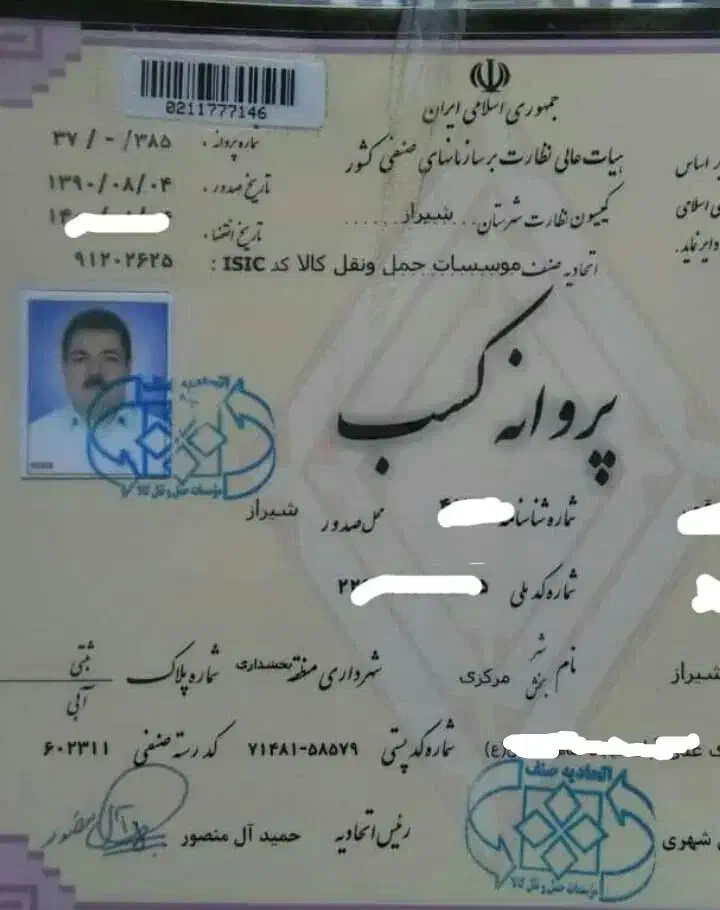 0211777146
جمهوری اسلامی ایران
شماره پروانه : ۳۷ / - /۳۸۵
بر اساس
هیات عالی نظارت بر سازمانهای صنفی کشور
تاریخ صدور : ۱۳۹۰/۰۸/۰۴
ی اسلامی
کمیسیون نظارت شهرستان شیراز
تاریخ انقضاء :
اتحادیه صنف موسسات حمل ونقل کالا کد ISIC : ۹۱۲۰۲۶۲۵
پروانه کسب
اتحادیه صنف
مؤسسات حمل و نقل کالا
شماره شناسنامه
محل صدور شیراز
شماره کد ملی
شیراز
نام شهر بخش مرکزی
شهرداری منطقه بخشداری
شماره پلاک ثبتی آبی
(ع)
شماره کد پستی ۷۱۴۸۱-۵۸۵۷۹
کد رسته صنفی ۶۰۲۳۱۱
اتحادیه صنف
مؤسسات حمل و نقل کالا
شهری
رئیس اتحادیه حمید آل منصور